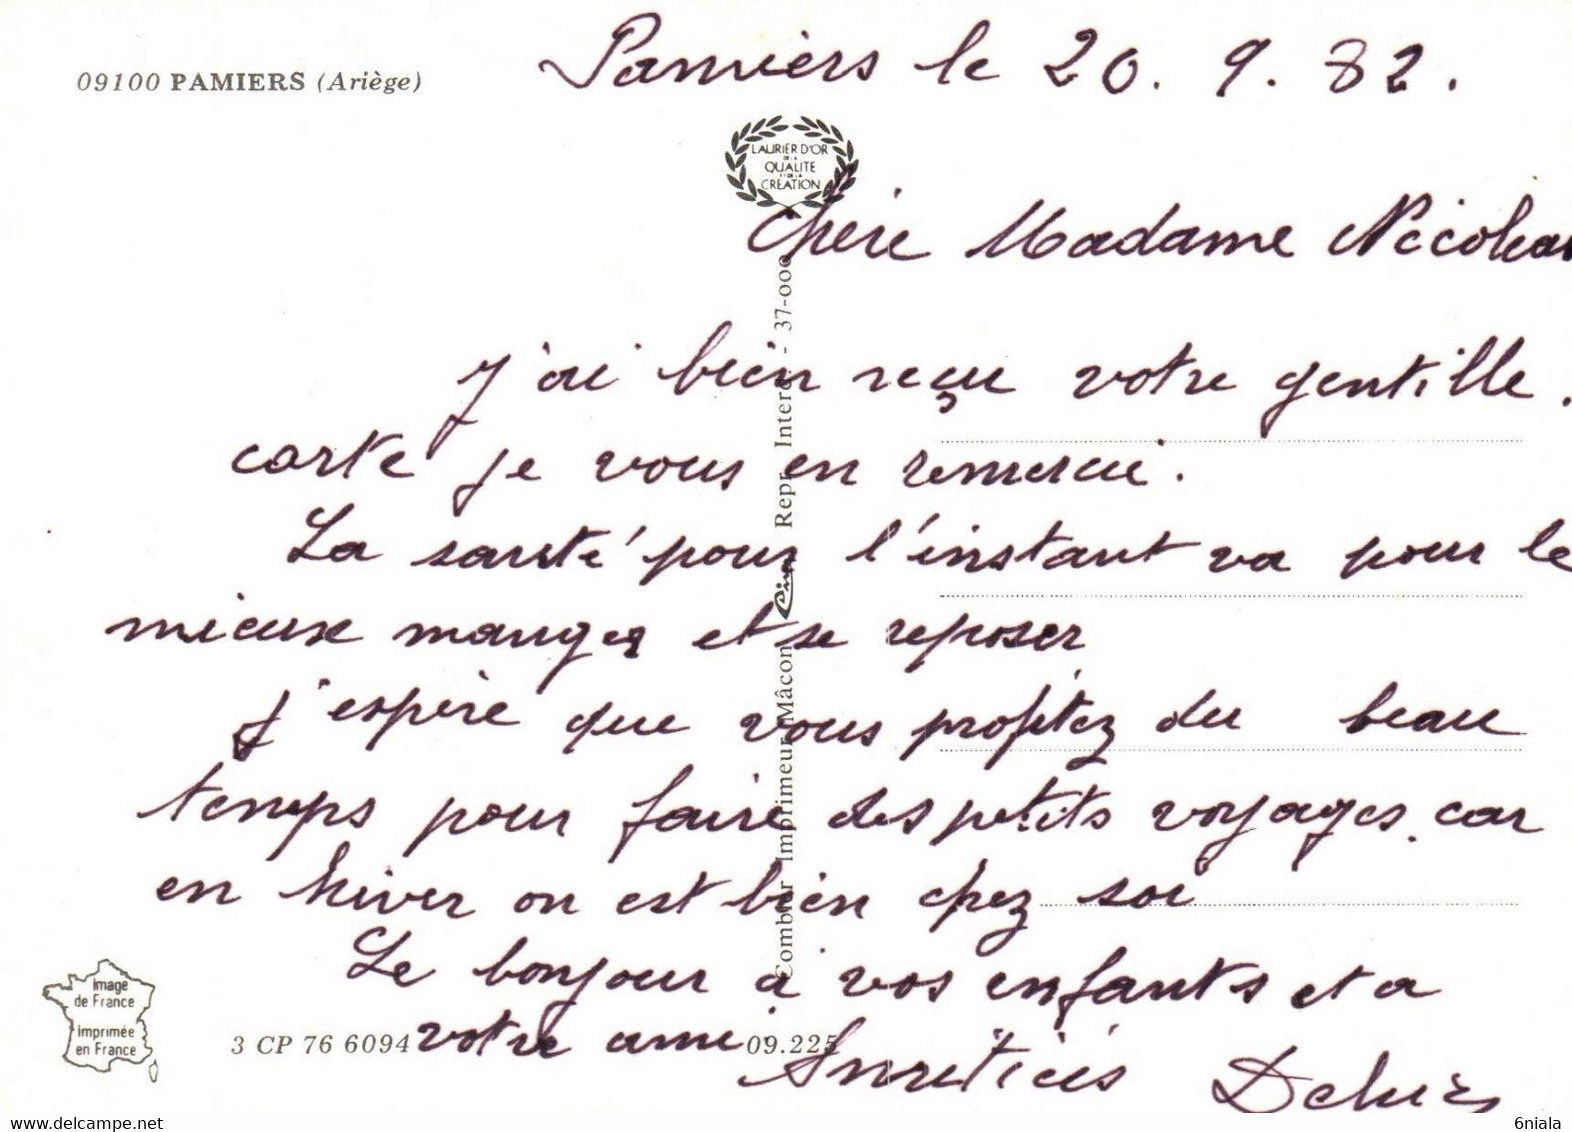 09100 PAMIERS (Ariège)
Pamiers le 20. 9. 82.
LAURIER D'OR
DE LA
QUALITE
ET DE LA
CRÉATION
Chère Madame
J'ai bien reçu votre gentille.
carte je vous en remercie.
La santé pour l'instant va pour le
mieux manger et se reposer
j'espère que vous profitez du beau
temps pour faire des petits voyages. car
en hiver on est bien chez soi
Le bonjour a vos enfants et a
votre ami
Amitiés
Combier Imprimeur Mâcon Cim Repr. Interd. - 37-000
Image
de France
Imprimée
en France
3 CP 76 6094
09.225
6niala